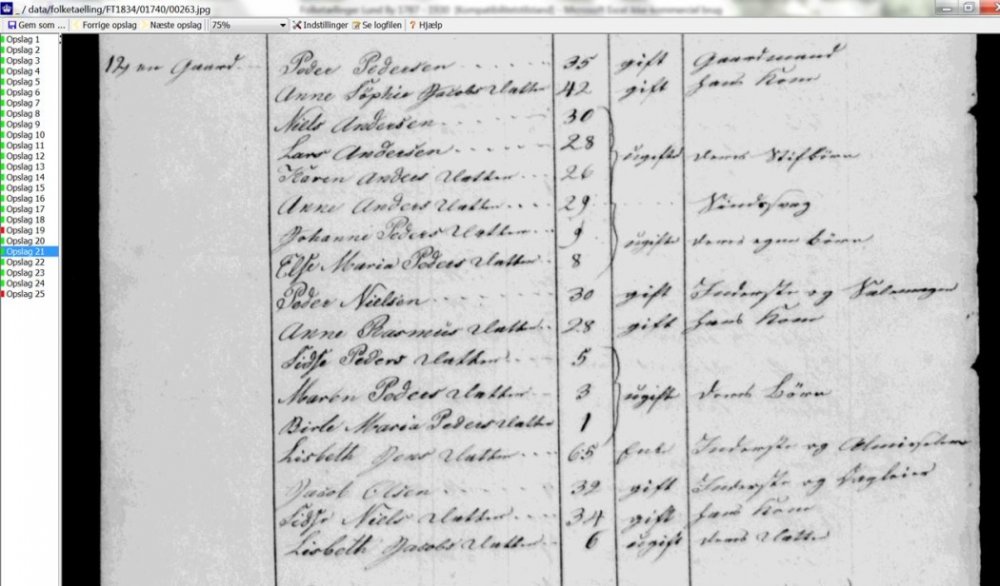 _ / data/folketaelling/FT1834/01740/00263.jpg
Gem som ... Forrige opslag Næste opslag 75% Indstillinger Se logfilen ? Hjælp
Opslag 1
Opslag 2
Opslag 3
Opslag 4
Opslag 5
Opslag 6
Opslag 7
Opslag 8
Opslag 9
Opslag 10
Opslag 11
Opslag 12
Opslag 13
Opslag 14
Opslag 15
Opslag 16
Opslag 17
Opslag 18
Opslag 19
Opslag 20
Opslag 21
Opslag 22
Opslag 23
Opslag 24
Opslag 25
en Gaard Peder Pedersen 35 gift Gaardmand
Anne Sophie Jacobs Datter 42 gift hans Kone
Niels Andersen 30
Lars Andersen 28
ugifte deres Stifbörn
Karen Anders Datter 26
Anne Anders Datter 29
Johanne Peders Datter 9
ugifte deres egne Börn
Else Maria Peders Datter 8
Peder Nielsen 30 gift Inderste og
Anne Rasmus Datter 28 gift hans Kone
Sidse Peders Datter 5
Maren Peders Datter 3 ugift deres Börn
Birte Maria Peders Datter 1
Lisbeth Jens Datter 65 Enke Inderste og
Jacob Olsen 39 gift Inderste og
Sidse Niels Datter 34 gift hans Kone
Lisbeth Jacobs Datter 6 ugift deres Datter